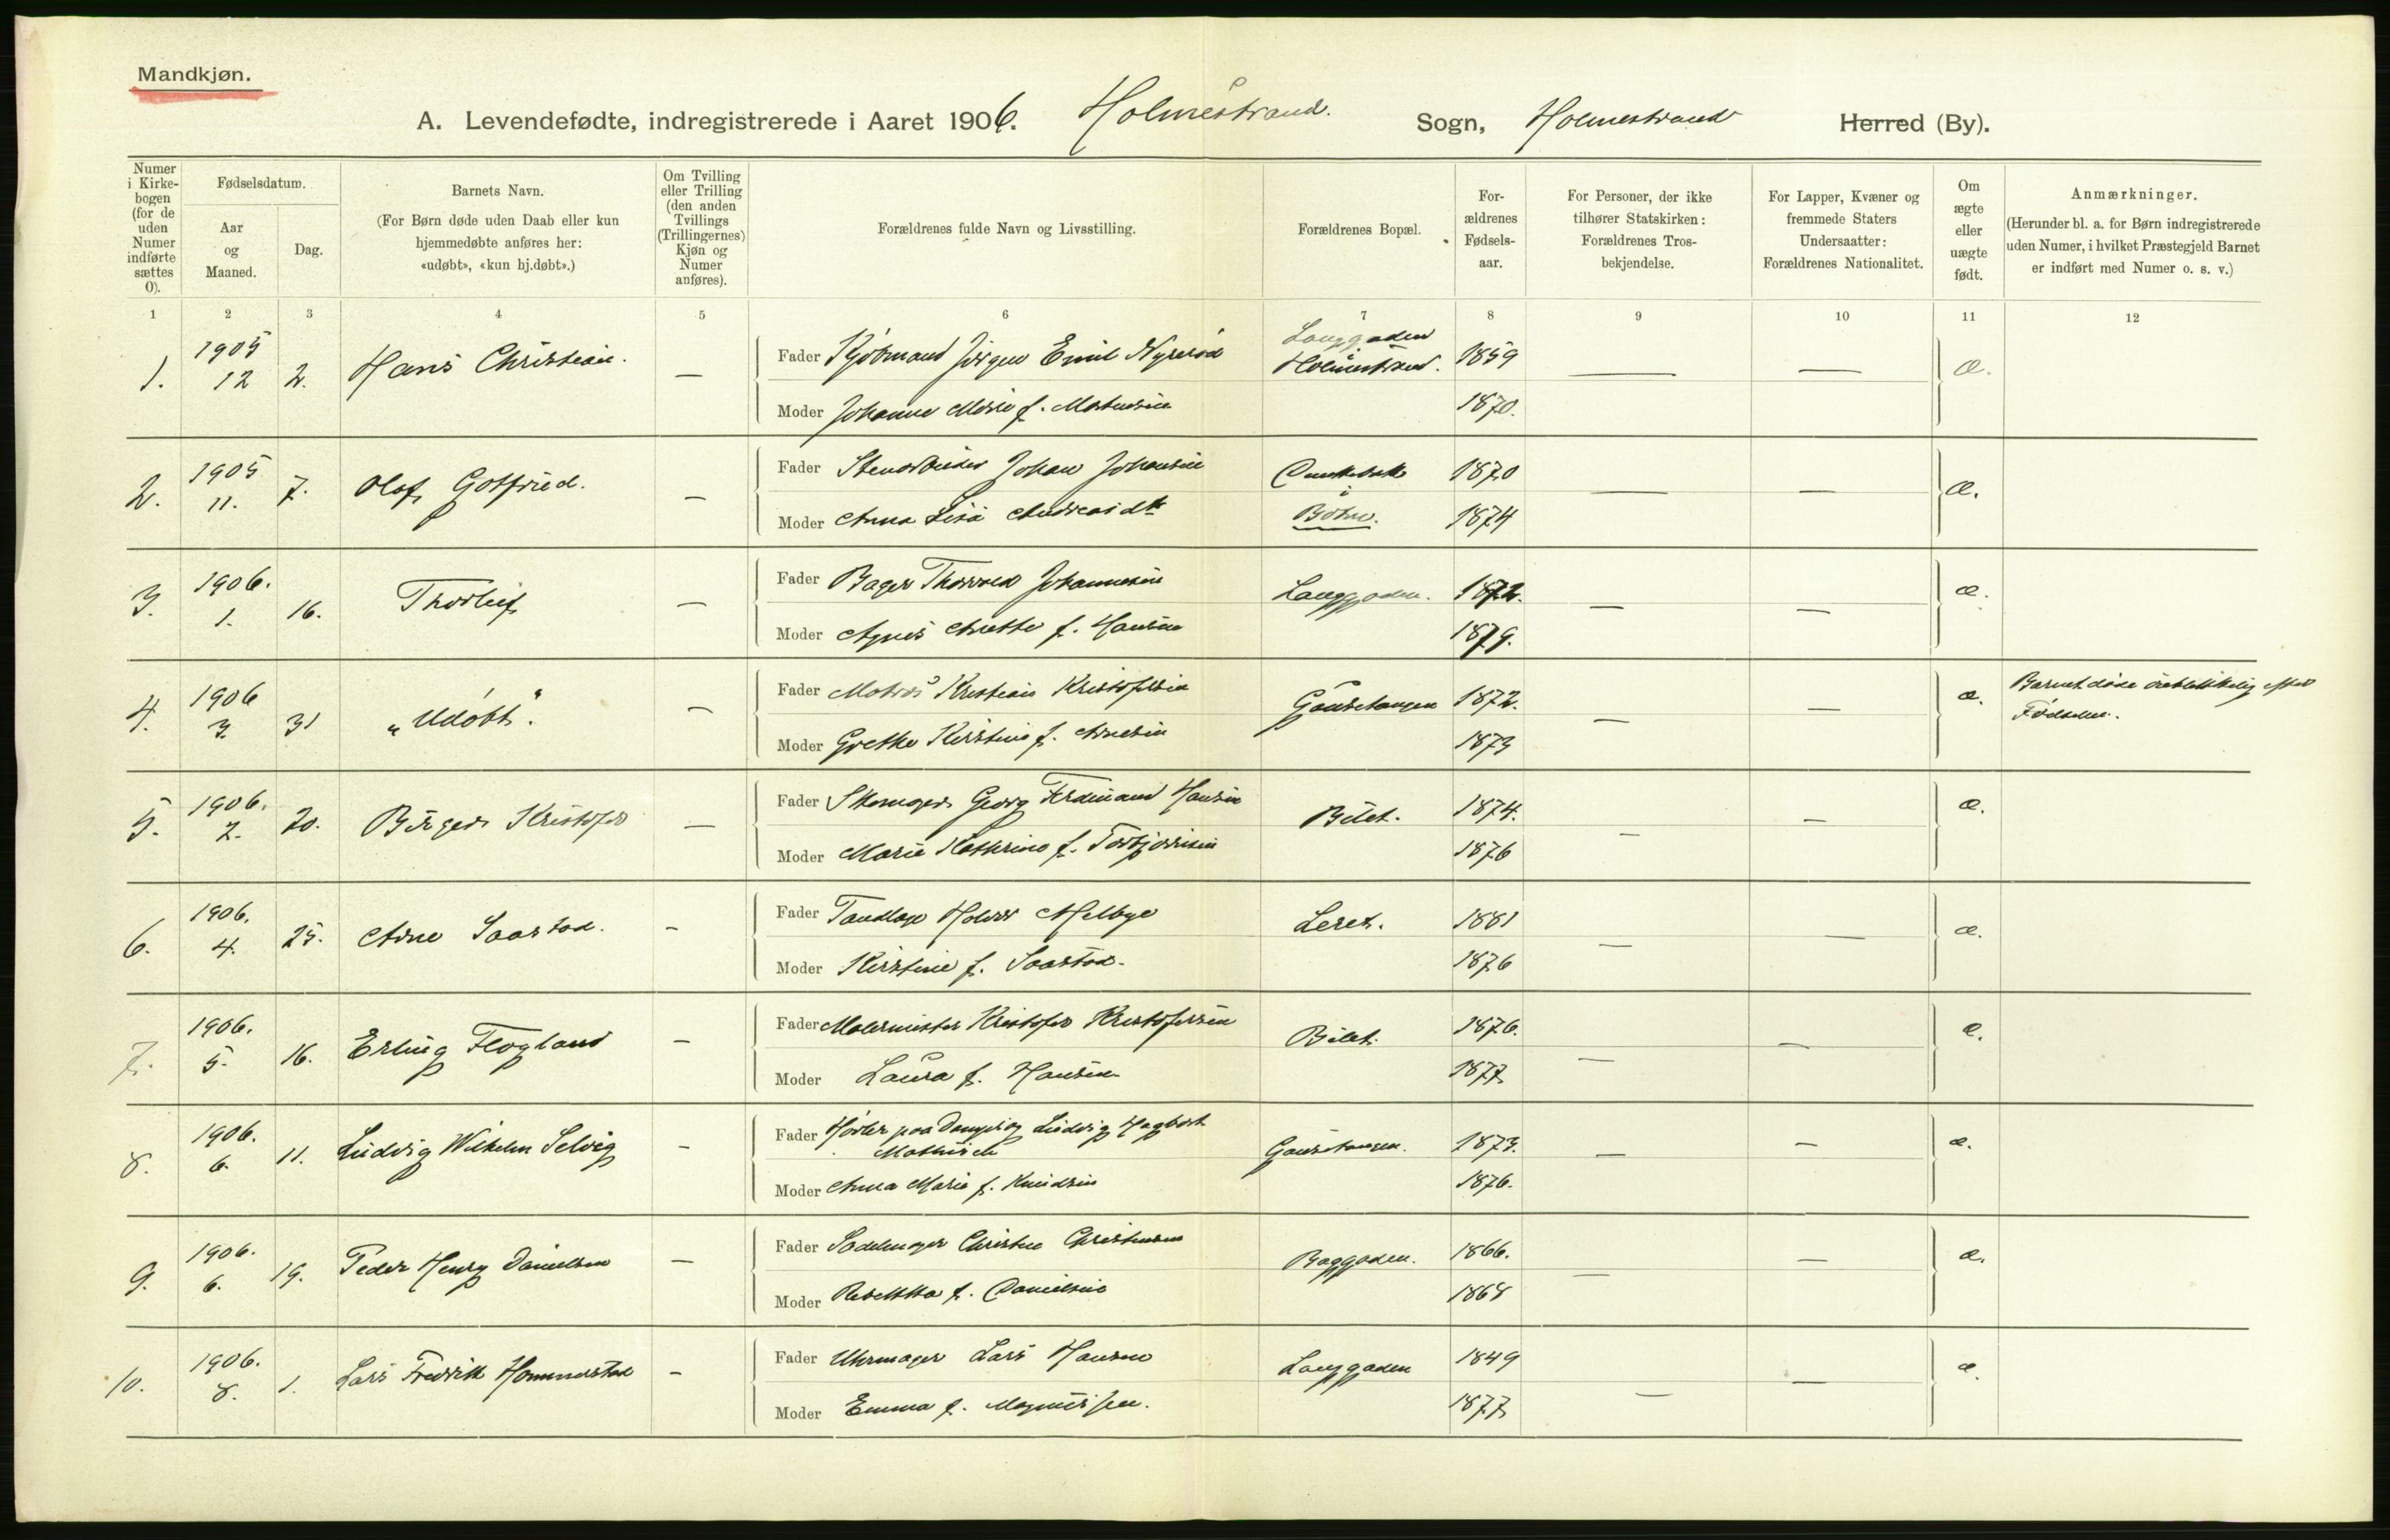 Mandkjøn.
A. Levendefødte, indregistrerede i Aaret 1906. Holmestrand. Sogn, Holmestrand Herred (By).
Numer i Kirkebogen (for de uden Numer indførte sættes 0).
Fødselsdatum.
Aar og Maaned.
Dag.
Barnets Navn.
(For Børn døde uden Daab eller kun hjemmedøbte anføres her: «udøbt», «kun hj.døbt».)
Om Tvilling eller Trilling (den anden Tvillings (Trillingernes) Kjøn og Numer anføres).
Forældrenes fulde Navn og Livsstilling.
Forældrenes Bopæl.
Forældrenes Fødselsaar.
For Personer, der ikke tilhører Statskirken: Forældrenes Trosbekjendelse.
For Lapper, Kvæner og fremmede Staters Undersaatter: Forældrenes Nationalitet.
Om ægte eller uægte født.
Anmærkninger.
(Herunder bl. a. for Børn indregistrerede uden Numer, i hvilket Præstegjeld Barnet er indført med Numer o. s. v.)
1 2 3 4 5 6 7 8 9 10 11 12
1. 1905 12 2. Hans Christian. — Fader Kjøbmand Jørgen Emil Nyrerød Langgaden Holmestrand. 1859 — — æ.
Moder Johanne Marie f. 1870.
2. 1905 11. 7. Olof Gotfried. — Fader Johan Johansen i Botne. 1870 — — æ.
Moder Anna Lisa Andreasdtr 1874
3. 1906. 1. 16. Thorleif — Fader Bager Thorvald Johannesen Langgaden. 1872. — — æ.
Moder Agnes Anette f. Hansen 1879.
4. 1906 3. 31 „Udøbt". — Fader Matros Kristian Kristofersen Gausetangen 1872. — — æ. Barnet døde øieblikkelig efter Fødselen.
Moder Grethe Kirstine f. Arnesen 1873
5. 1906. 2. 20. Birger Kristofer — Fader Skomager Georg Ferdinand Hansen Bilet. 1874. — — æ.
Moder Marie Kathrine f. Torbjørnsen 1876
6. 1906. 4. 25. Arne Saastad. — Fader Tandlæge Melbye Leret. 1881 — — æ.
Moder Kirstine f. Saastad. 1876
7. 1906. 5. 16. Erling Flogland — Fader Malermester Kristofer Kristofersen Bilet. 1876. — — æ.
Moder Laura f. Hansen 1877
8. 1906. 6. 11. Ludvig Wilhelm Selvig — Fader paa Ludvig Hagbart Mathisen Gausetangen. 1873. — — æ.
Moder Anna Marie f. Knudsen 1876.
9. 1906. 6. 19. Peder Henry Danielsen — Fader Sadelmager Christen Christensen Baggaden. 1866. — — æ.
Moder Rebekka f. Danielsen 1868
10. 1906. 8. 1. Lars Fredrik Hommerstad — Fader Uhrmager Lars Hansen Langgaden 1849 — — æ.
Moder Emma f. Magnussen. 1877